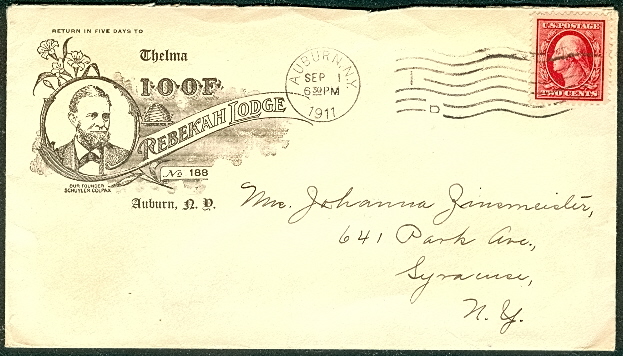 RETURN IN FIVE DAYS TO
Thelma
I·O·O·F·
REBEKAH LODGE
No 188
OUR FOUNDER
SCHUYLER COLFAX
Auburn, N. Y.
AUBURN, N.Y.
SEP 1
6 30 PM
1911
D
U.S. POSTAGE
TWO CENTS
Mrs. Johanna Zinsmeister,
641 Park Ave.,
Syracuse,
N. Y.